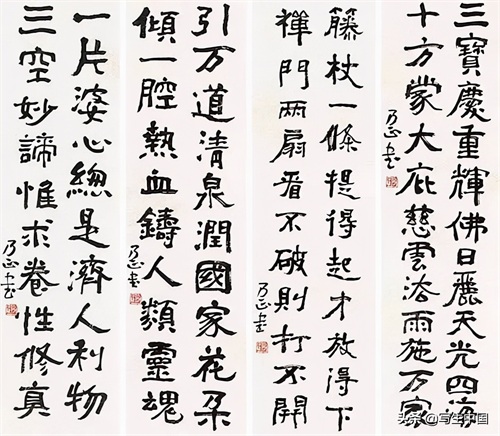 三寶慶重輝佛日麗天光四海
十方蒙大庇慈雲法雨施万家
乃正書
籐杖一條提得起才放得下
禪門兩扇看不破則打不開
乃正書
引万道清泉潤國家花朵
傾一腔熱血鑄人類靈魂
乃正書
一片婆心總是濟人利物
三空妙諦惟求養性修真
乃正書
头条 @写生中国